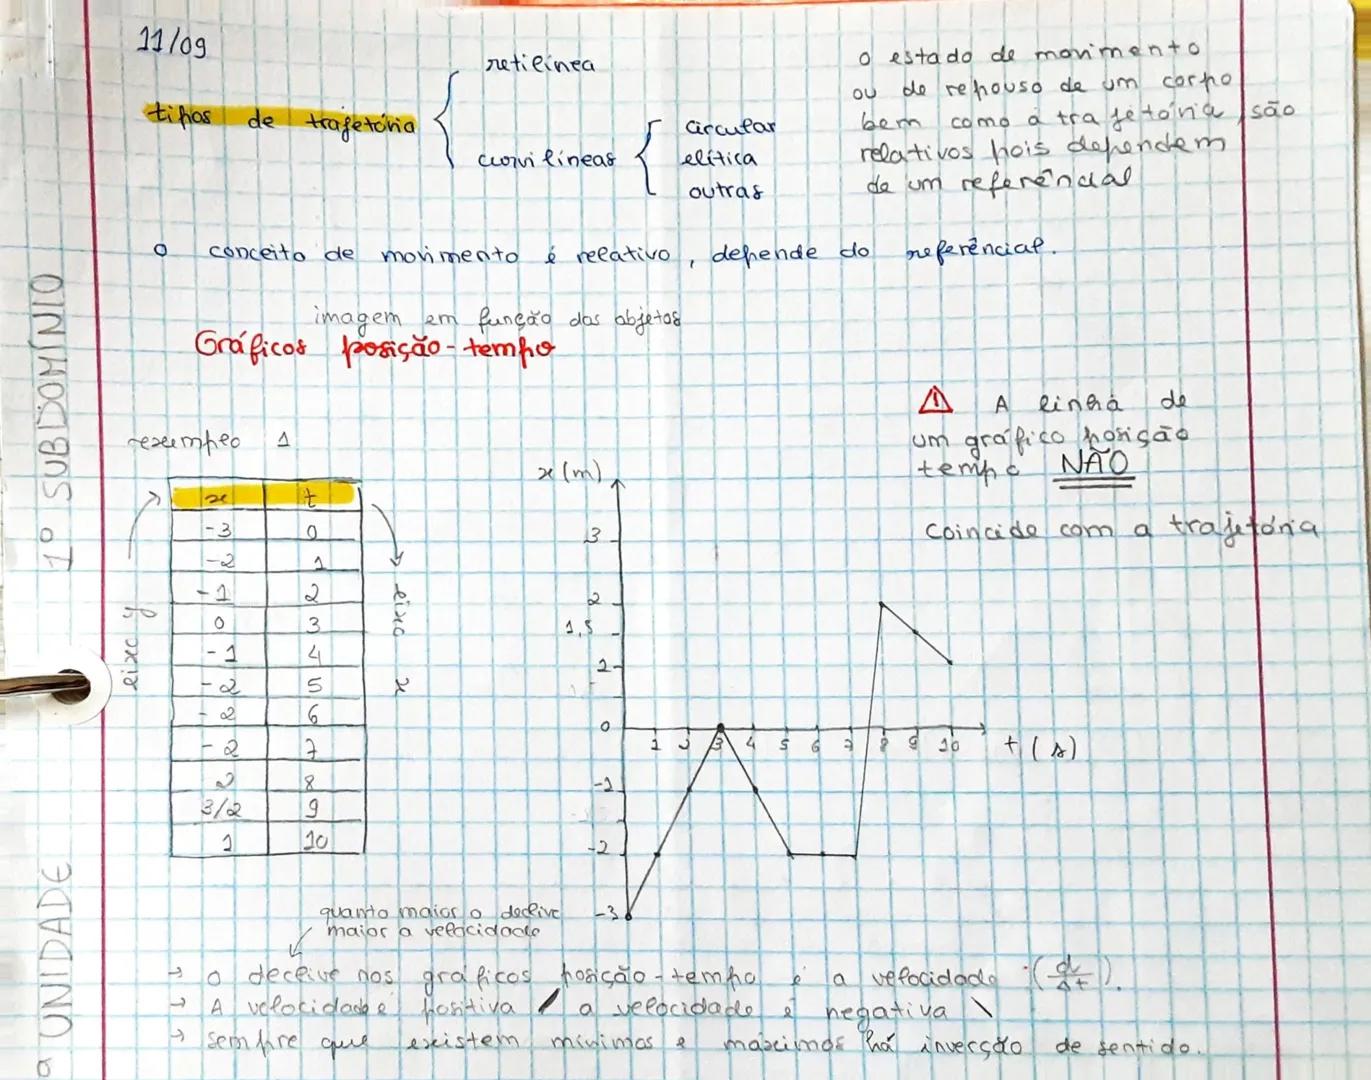 11/09
tipos de trajetória
retilínea
curvilíneas
circular
elítica
outras
o estado de movimento
ou de repouso de um corpo
bem como a trajetória são
relativos pois dependem
de um referêncial
o conceito de movimento é relativo, depende do referêncial.
imagem em função dos objetos
Gráficos posição-tempo
⚠ A linha de
um gráfico posição
tempo NÃO
coincide com a trajetória
exemplo 1
x t
-3 0
-2 1
-1 2
0 3
-1 4
-2 5
-2 6
-2 7
2 8
3/2 9
1 10
eixo y
eixo x
x (m)
3
2
1,5
1
0
-1
-2
-3
1 2 3 4 5 6 7 8 9 10 t (s)
quanto maior o declive
maior a velocidade
→ o declive nos gráficos posição-tempo é a velocidade
→ A velocidade é positiva / a velocidade é negativa \
→ sempre que existem mínimos e máximos há inversão de sentido.
1º SUBDOMÍNIO
UNIDADE